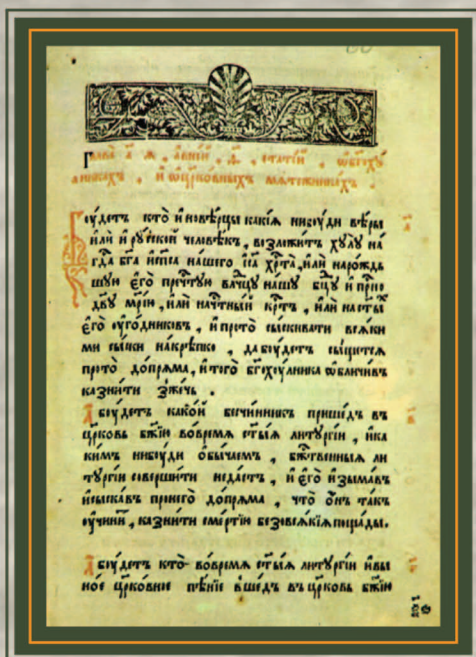 Глава а҃ я, а в ней, ѳ҃, статей, ѡ бг҃оху
лникахъ, и ѡ цр҃ковныхъ мятежникахъ.
Боудетъ кто иновѣрцы какия нибоуди вѣры
или и роуской человѣкъ, возложитъ хулу на
гд҃а бг҃а и сп҃са нашего іс҃а хр҃та, или нарождь
шую его пречⷭ҇тую влⷣчцу нашу бц҃у и приⷭ҇но
дв҃у мр҃ію, или на чтⷭ҇ный крⷭ҇тъ, или на ст҃ыⷯ
его оугодниковъ, и про то сыскивати всяки
ми сыски накрѣпко, да боудетъ сыщется
про то допряма, и того бг҃охоулника ѡбличивъ
казнити зжечь.
А боудетъ какой бесчинникъ пришедъ въ
цр҃ковь бж҃ию во время ст҃ыя литургіи, и ка
кимъ нибоуди обычаемъ, бжⷭ҇твенныя ли
тургіи совершити недастъ, и его изымавъ
и сыскавъ про него допряма, что онъ такъ
оучинит, казнити смертію безо всякія пощады.
А боудетъ кто во время ст҃ыя литургіи и в ы
ное цр҃ковное пѣніе вшедъ въ цр҃ковь бж҃ию